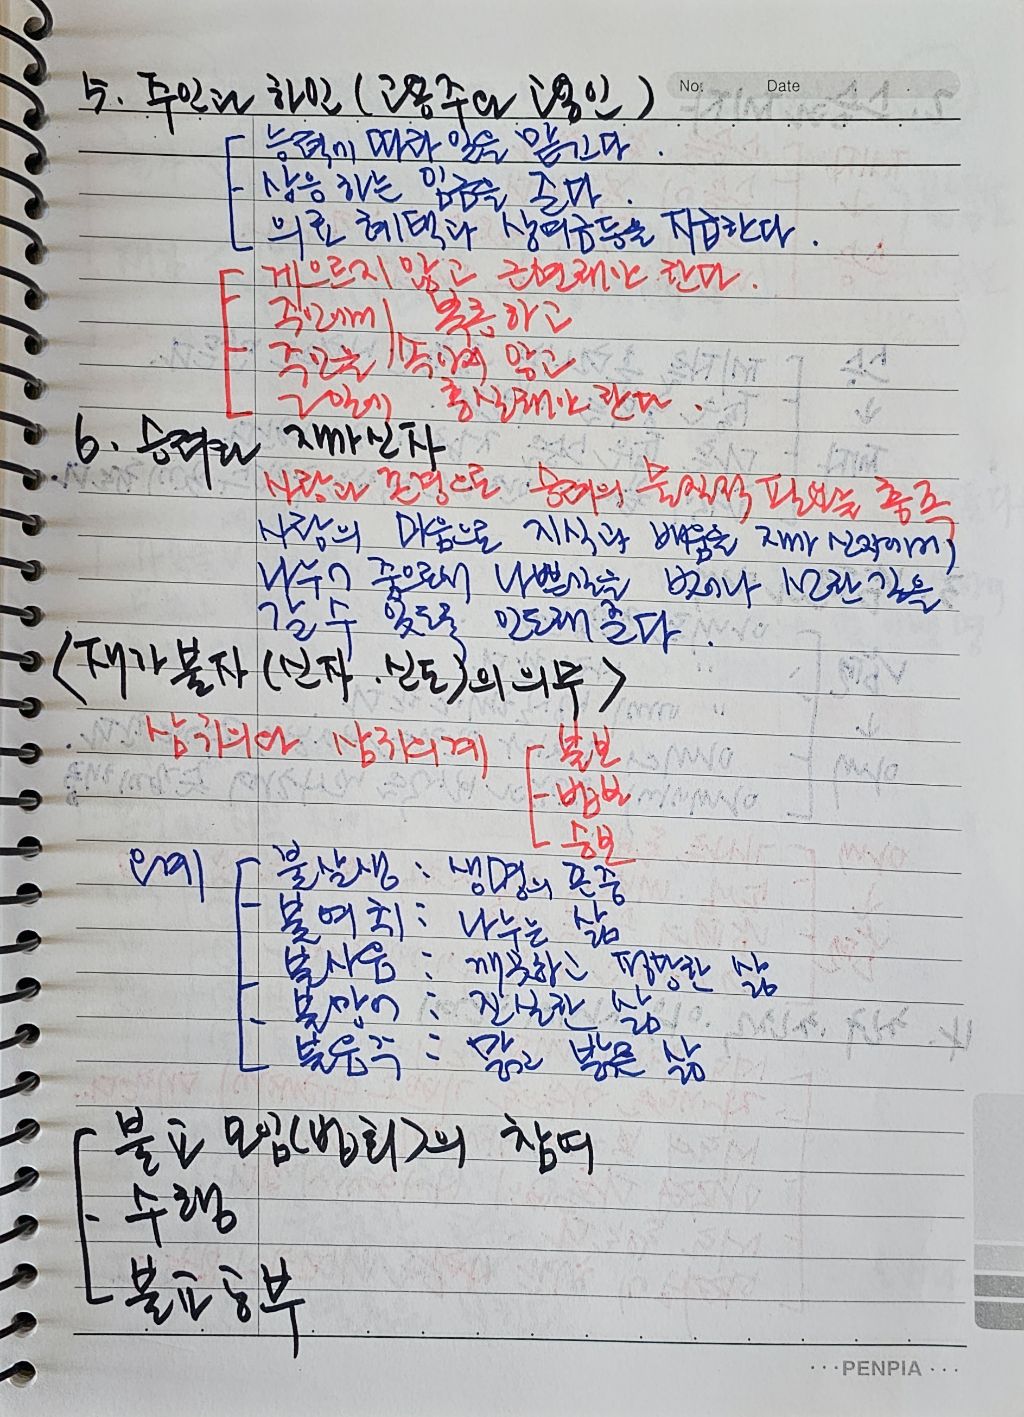 No:
Date
5. 주인과 하인 (고용주와 고용인)
능력에 따라 일을 맡긴다.
상응하는 임금을 준다.
의료 혜택과 상여금등을 지급한다.
게으르지 않고 근면해야 한다.
주인에게 복종하고
주인을 속이지 않고
그 일에 충실해야 한다.
6. 승려와 재가신자
사랑과 존경으로 승려의 물질적 필요를 충족
사랑의 마음으로 지식과 배움을 재가 신자에게
나누어 줌으로써 나쁜 을 벗어나 선한 길을
갈 수 있도록 인도해 준다.
<재가불자(신자.신도)의 의무>
삼귀의와 삼귀의계
불보
법보
승보
오계
불살생 : 생명의 존중
불여취 : 나누는 삶
불사음 : 깨끗하고 평탄한 삶
불망어 : 진실한 삶
불음주 : 맑고 밝은 삶
불교 모임(법회)의 참여
수행
불교공부
···PENPIA···